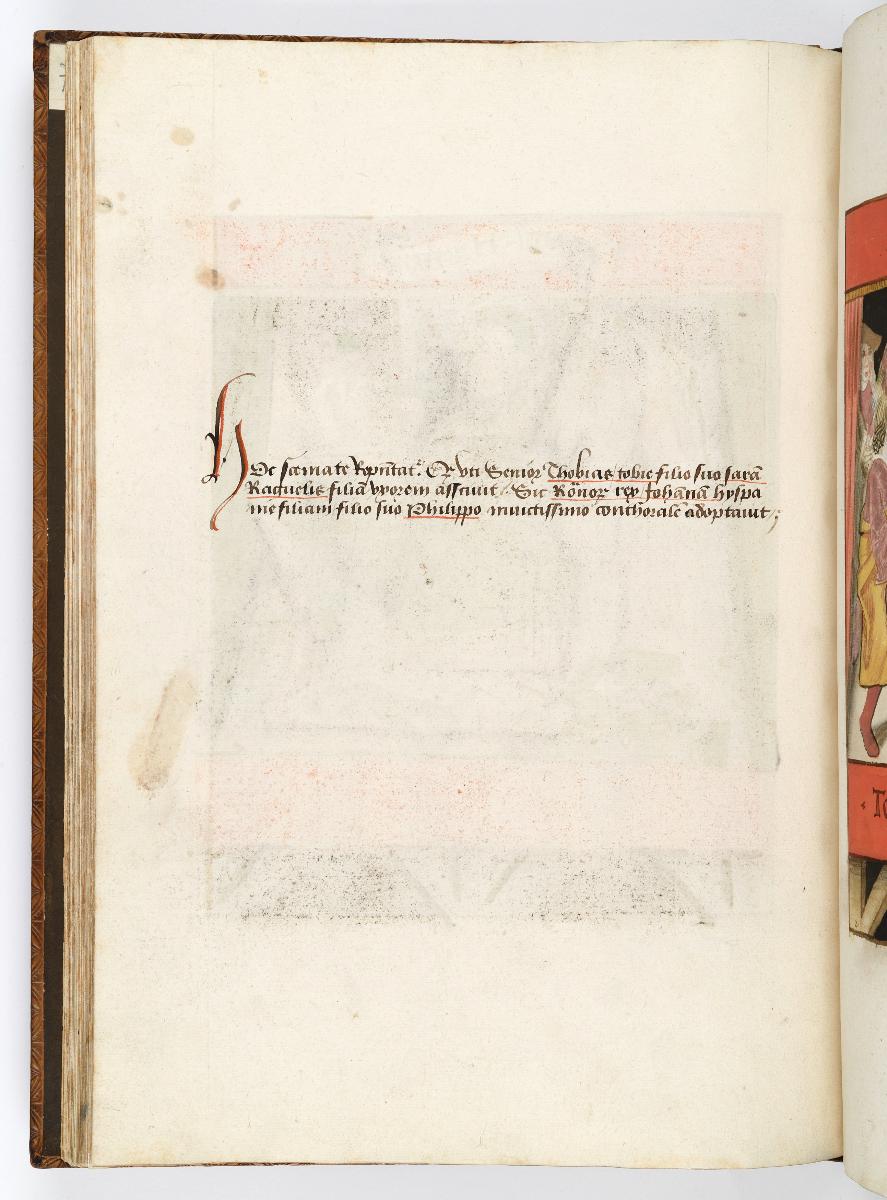 Hoc scemate Repñtat᷑. Qr vti Senior Thobias tobie filio suo sarā
Raguelis filiā vxorem asściuit / Sic Rōnor rex Johānā hyspa
nie filiam filio suo Philippo inuictissimo conthoralē adoptauit /;